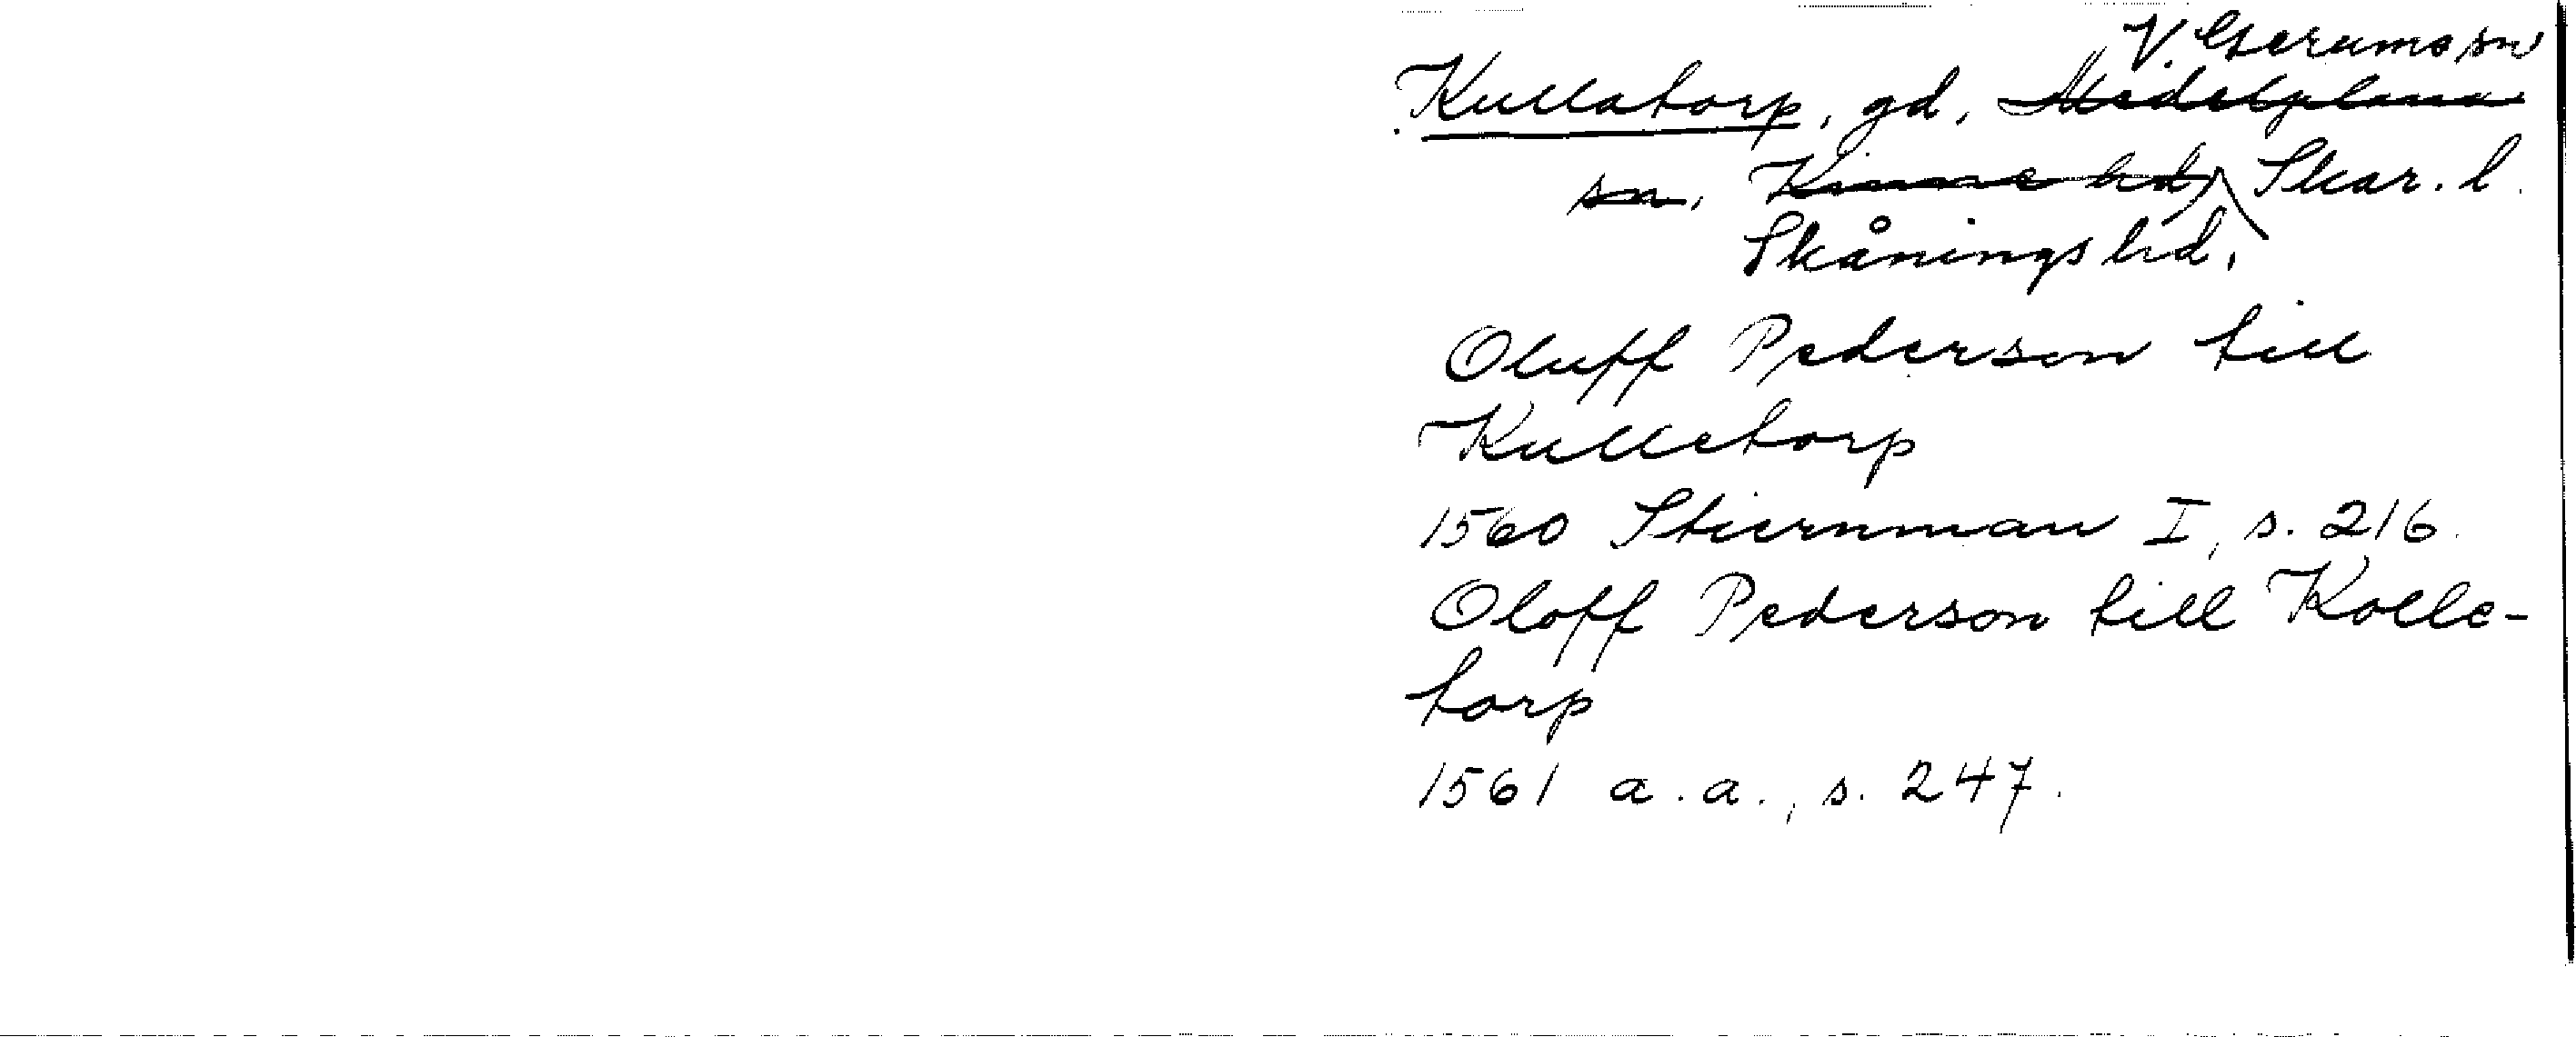 V. Gerums sn
Kullatorp, gd, Medelplana
sn. Kinne hd, Skar. l.
Skånings hd.
Oluff Pederson till
Kulletorp
1560 Stiernman I, s. 216.
Oloff Pederson till Kolle-
torp
1561 a. a., s. 247.